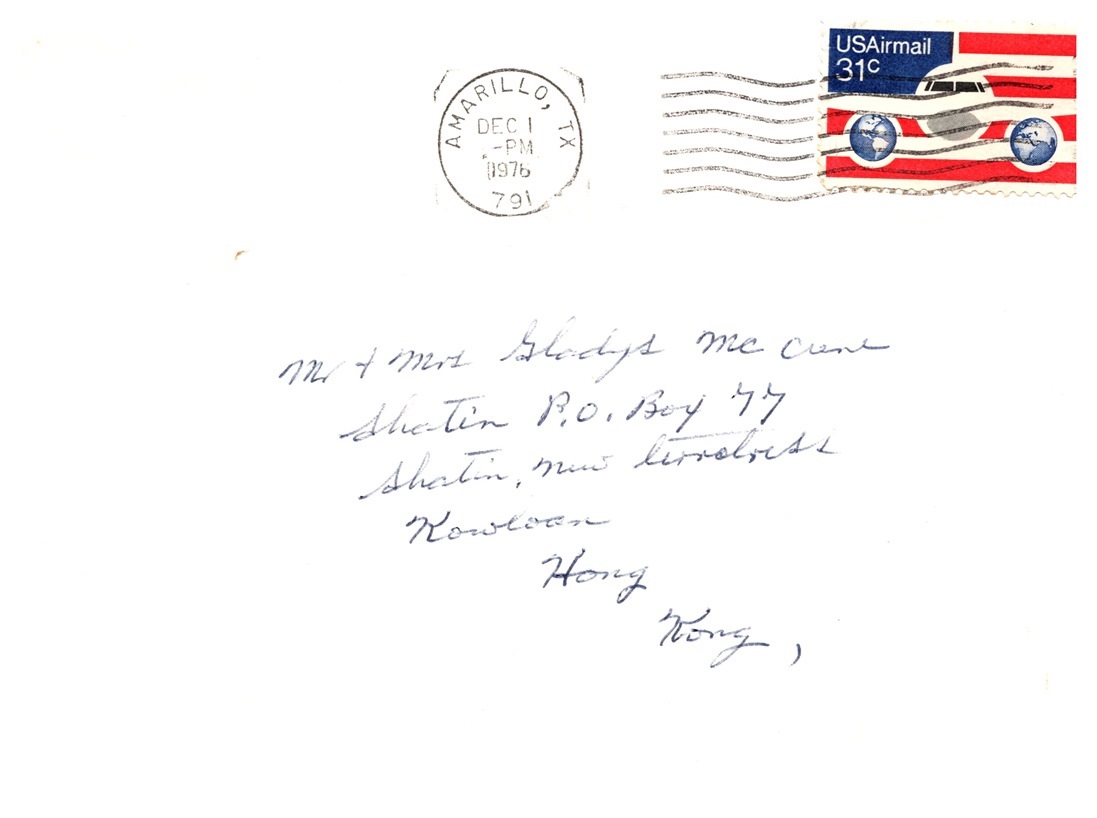 USAirmail
31c
AMARILLO, TX
DEC 1
-PM
1976
791
Mr + Mrs Gladys Mc Crene
Shatin P.O. Box 77
Shatin, New
Kowloon
Hong
Kong,